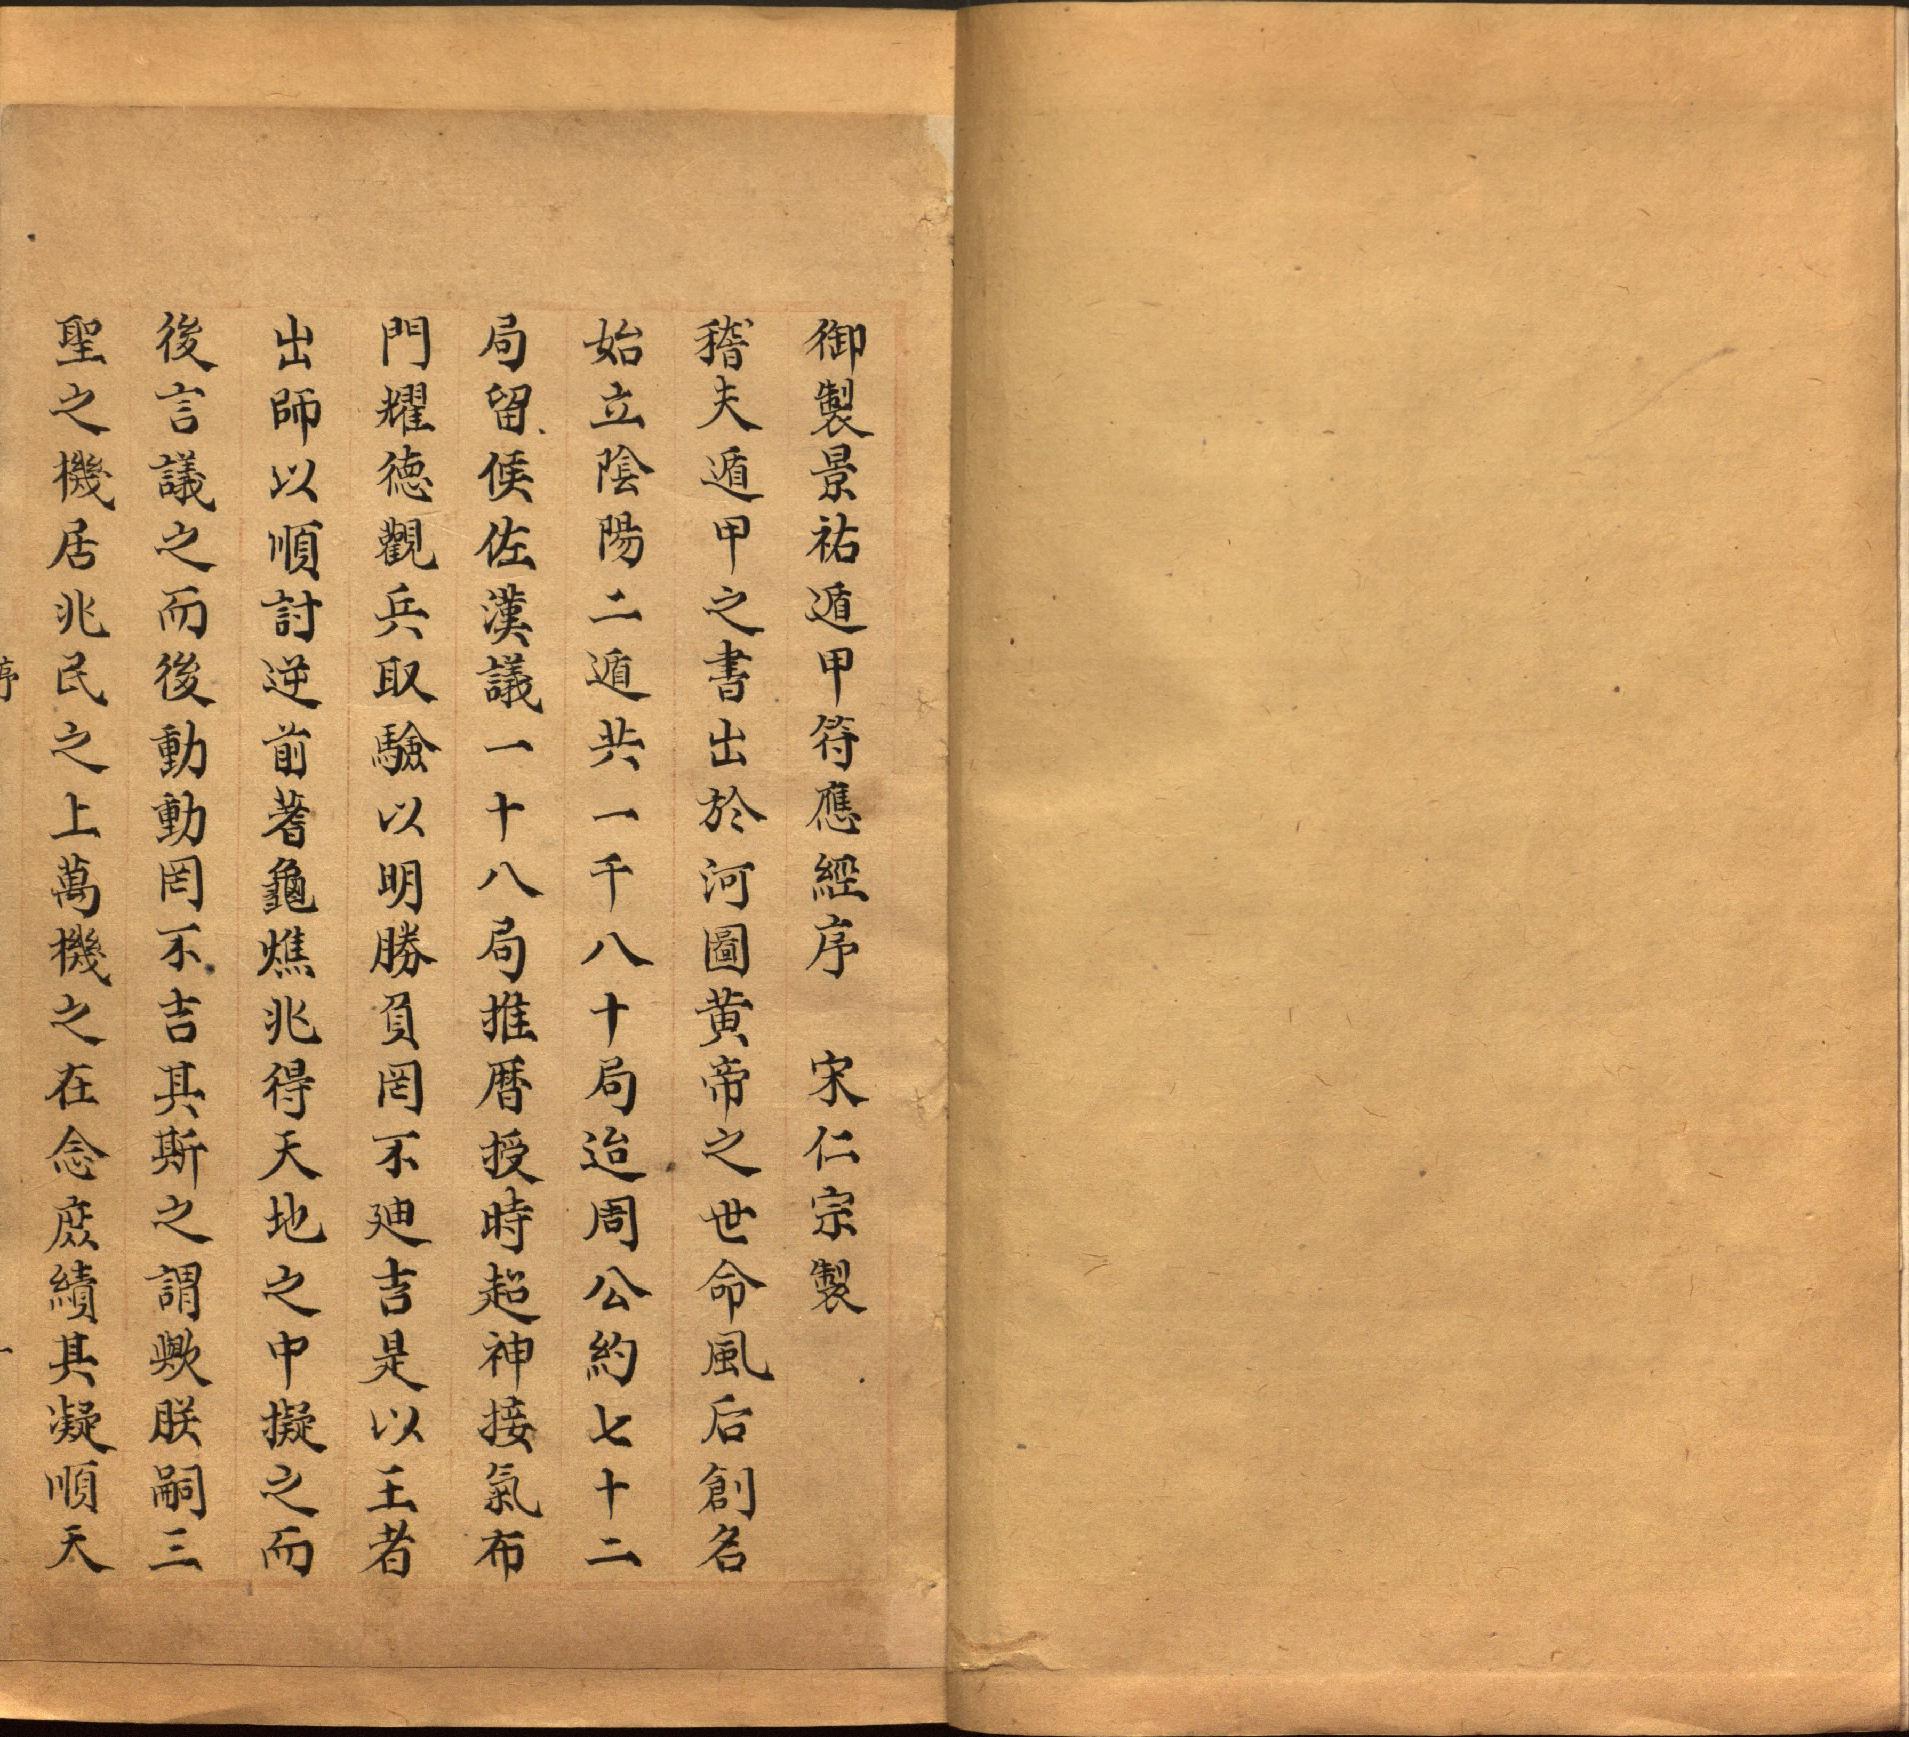 御製景祐遁甲符應經序　宋仁宗製
稽夫遁甲之書出於河圖黄帝之世命風后創名
始立陰陽二遁共一千八十局迨周公約七十二
局留候佐漢議一十八局推曆授時超神接氣布
門耀德觀兵取驗以明勝負罔不迪吉是以王者
出師以順討逆前蓍龜燋兆得天地之中擬之而
後言議之而後動動罔不吉其斯之謂歟朕嗣三
聖之機居兆民之上萬機之在念庶績其凝順天
序
一